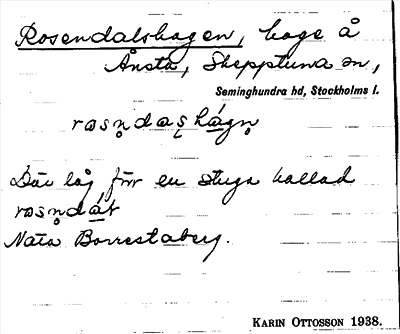 Rosendalshagen, hage å
Ånsta, Skepptuna sn,
Seminghundra hd, Stockholms l.
rosn̥das̨hágn̥
Där låg förr en stuga kallad
rosn̥dáł
Nära Borrestaberg.
KARIN OTTOSSON 1938.